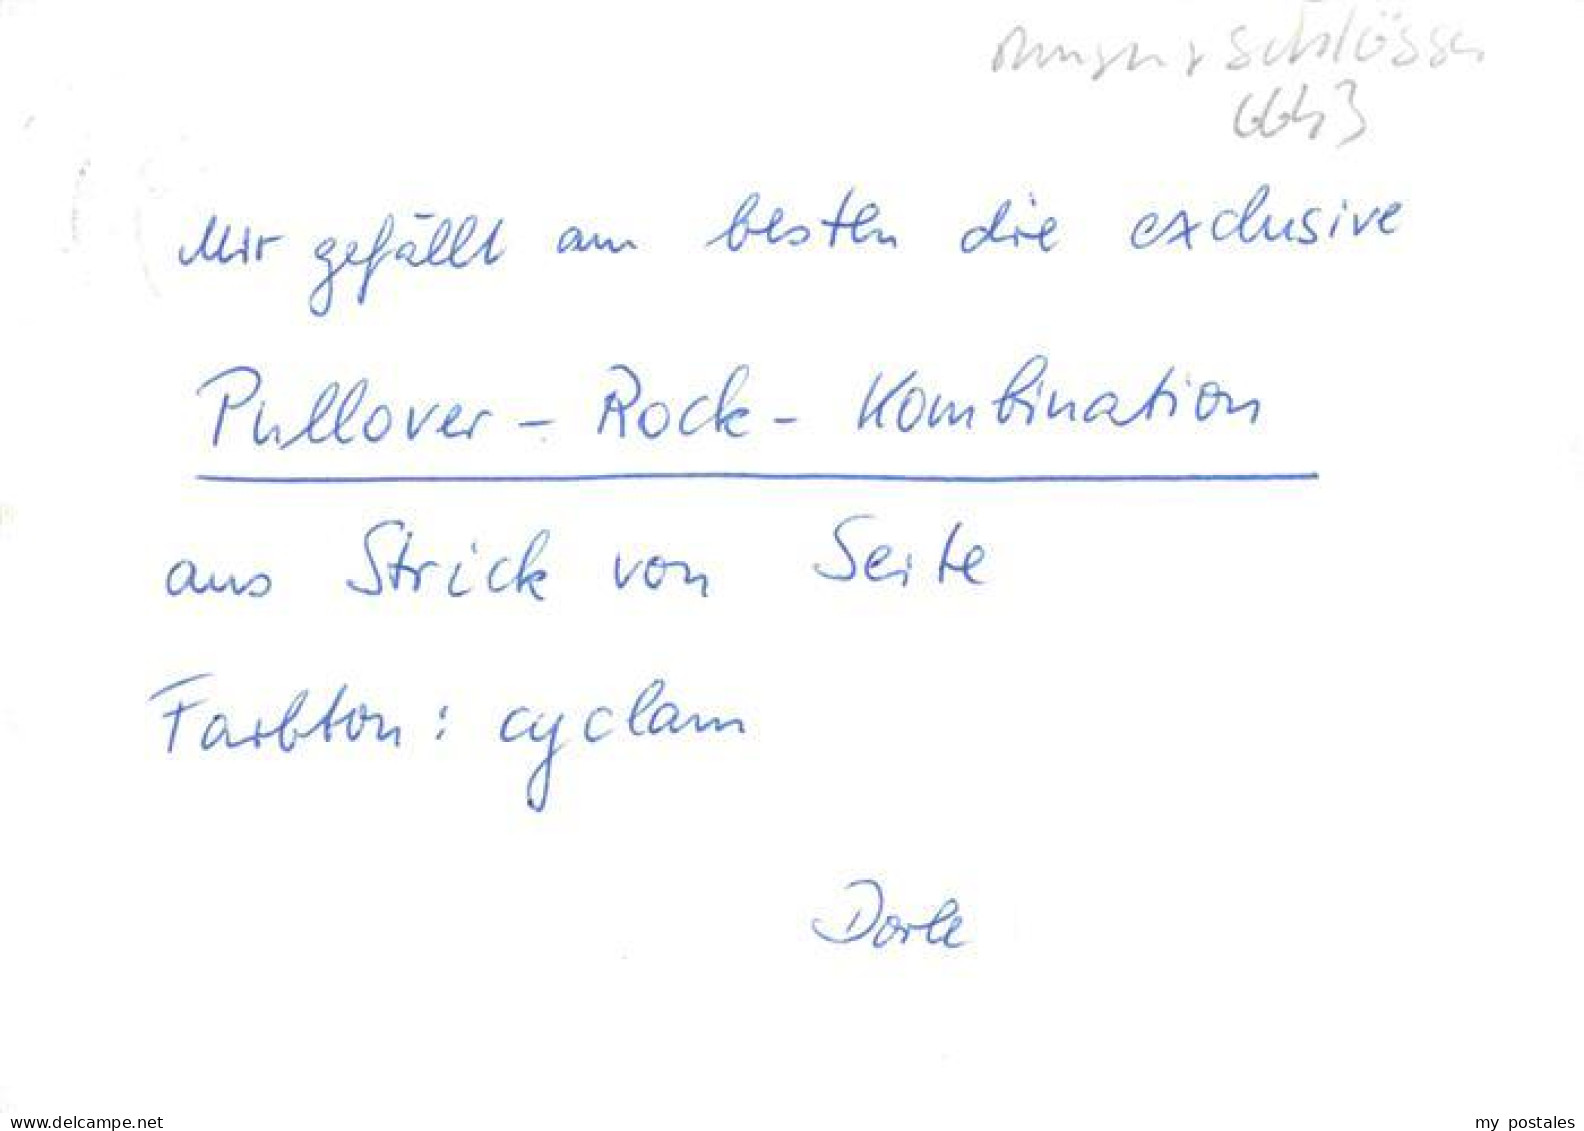 Schlösser
6643
Mir gefällt am besten die exclusive
Pullover - Rock - Kombination
aus Strick von Seite
Farbton: cyclam
Dorle
delcampe.net
my postales